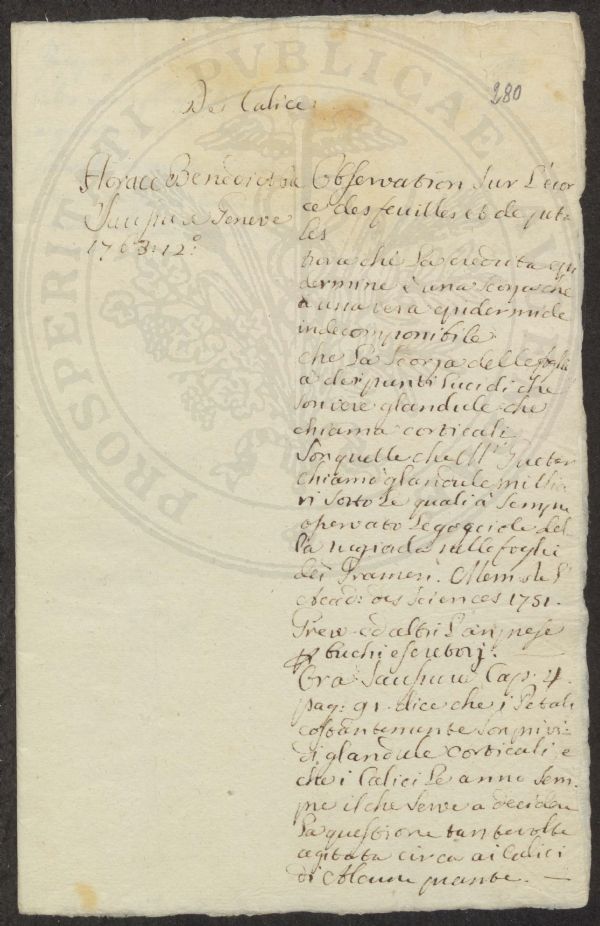 280
Del Calice:
Horace Benedict de
Saussure Geneve
1763: 12°:
Observation sur L'ecor
ce des feuilles et de peta
les
trova che La creduta epi
dermine è una scorza che
a una vera epidermide
indecomponibile
che La Scorza delle foglie
a dei punti Lucidi che
son vere glandule che
chiama corticali
Son quelle che Mr Guetar
chiamò glandule milia
ri sotto Le quali à sempre
osservato Le gocciole del
La rugiada nelle foglie
dei Grameri. Mem: de L'
Acad: des Sciences 1751.
Trew ed altri L'anprese
p buchi escretorj.
Ora Saussure Cap: 4.
pag: 91. dice che i Petali
costantemente son privi
di glandule corticali e
che i Calici Le anno sem
pre il che serve a decidere
La questione tante volte
agitata circa ai Calici
di Alcune piante. —
PROSPERITATI PUBLICAE